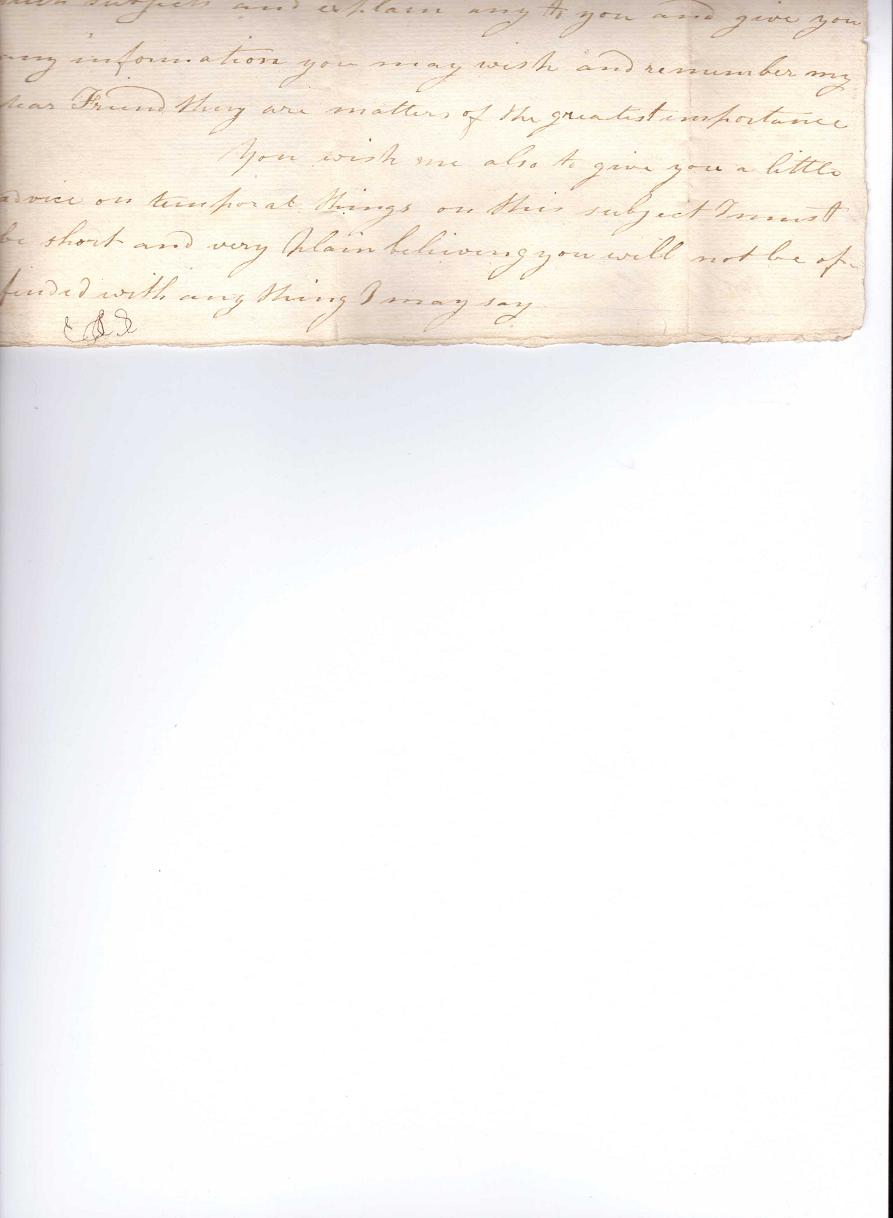 subjects and explain any to you and give you
any information you may wish and remember my
dear Friend they are matters of the greatest importance
You wish me also to give you a little
advice on temporal things on this subject I must
be short and very plain believing you will not be of-
fended with any thing I may say